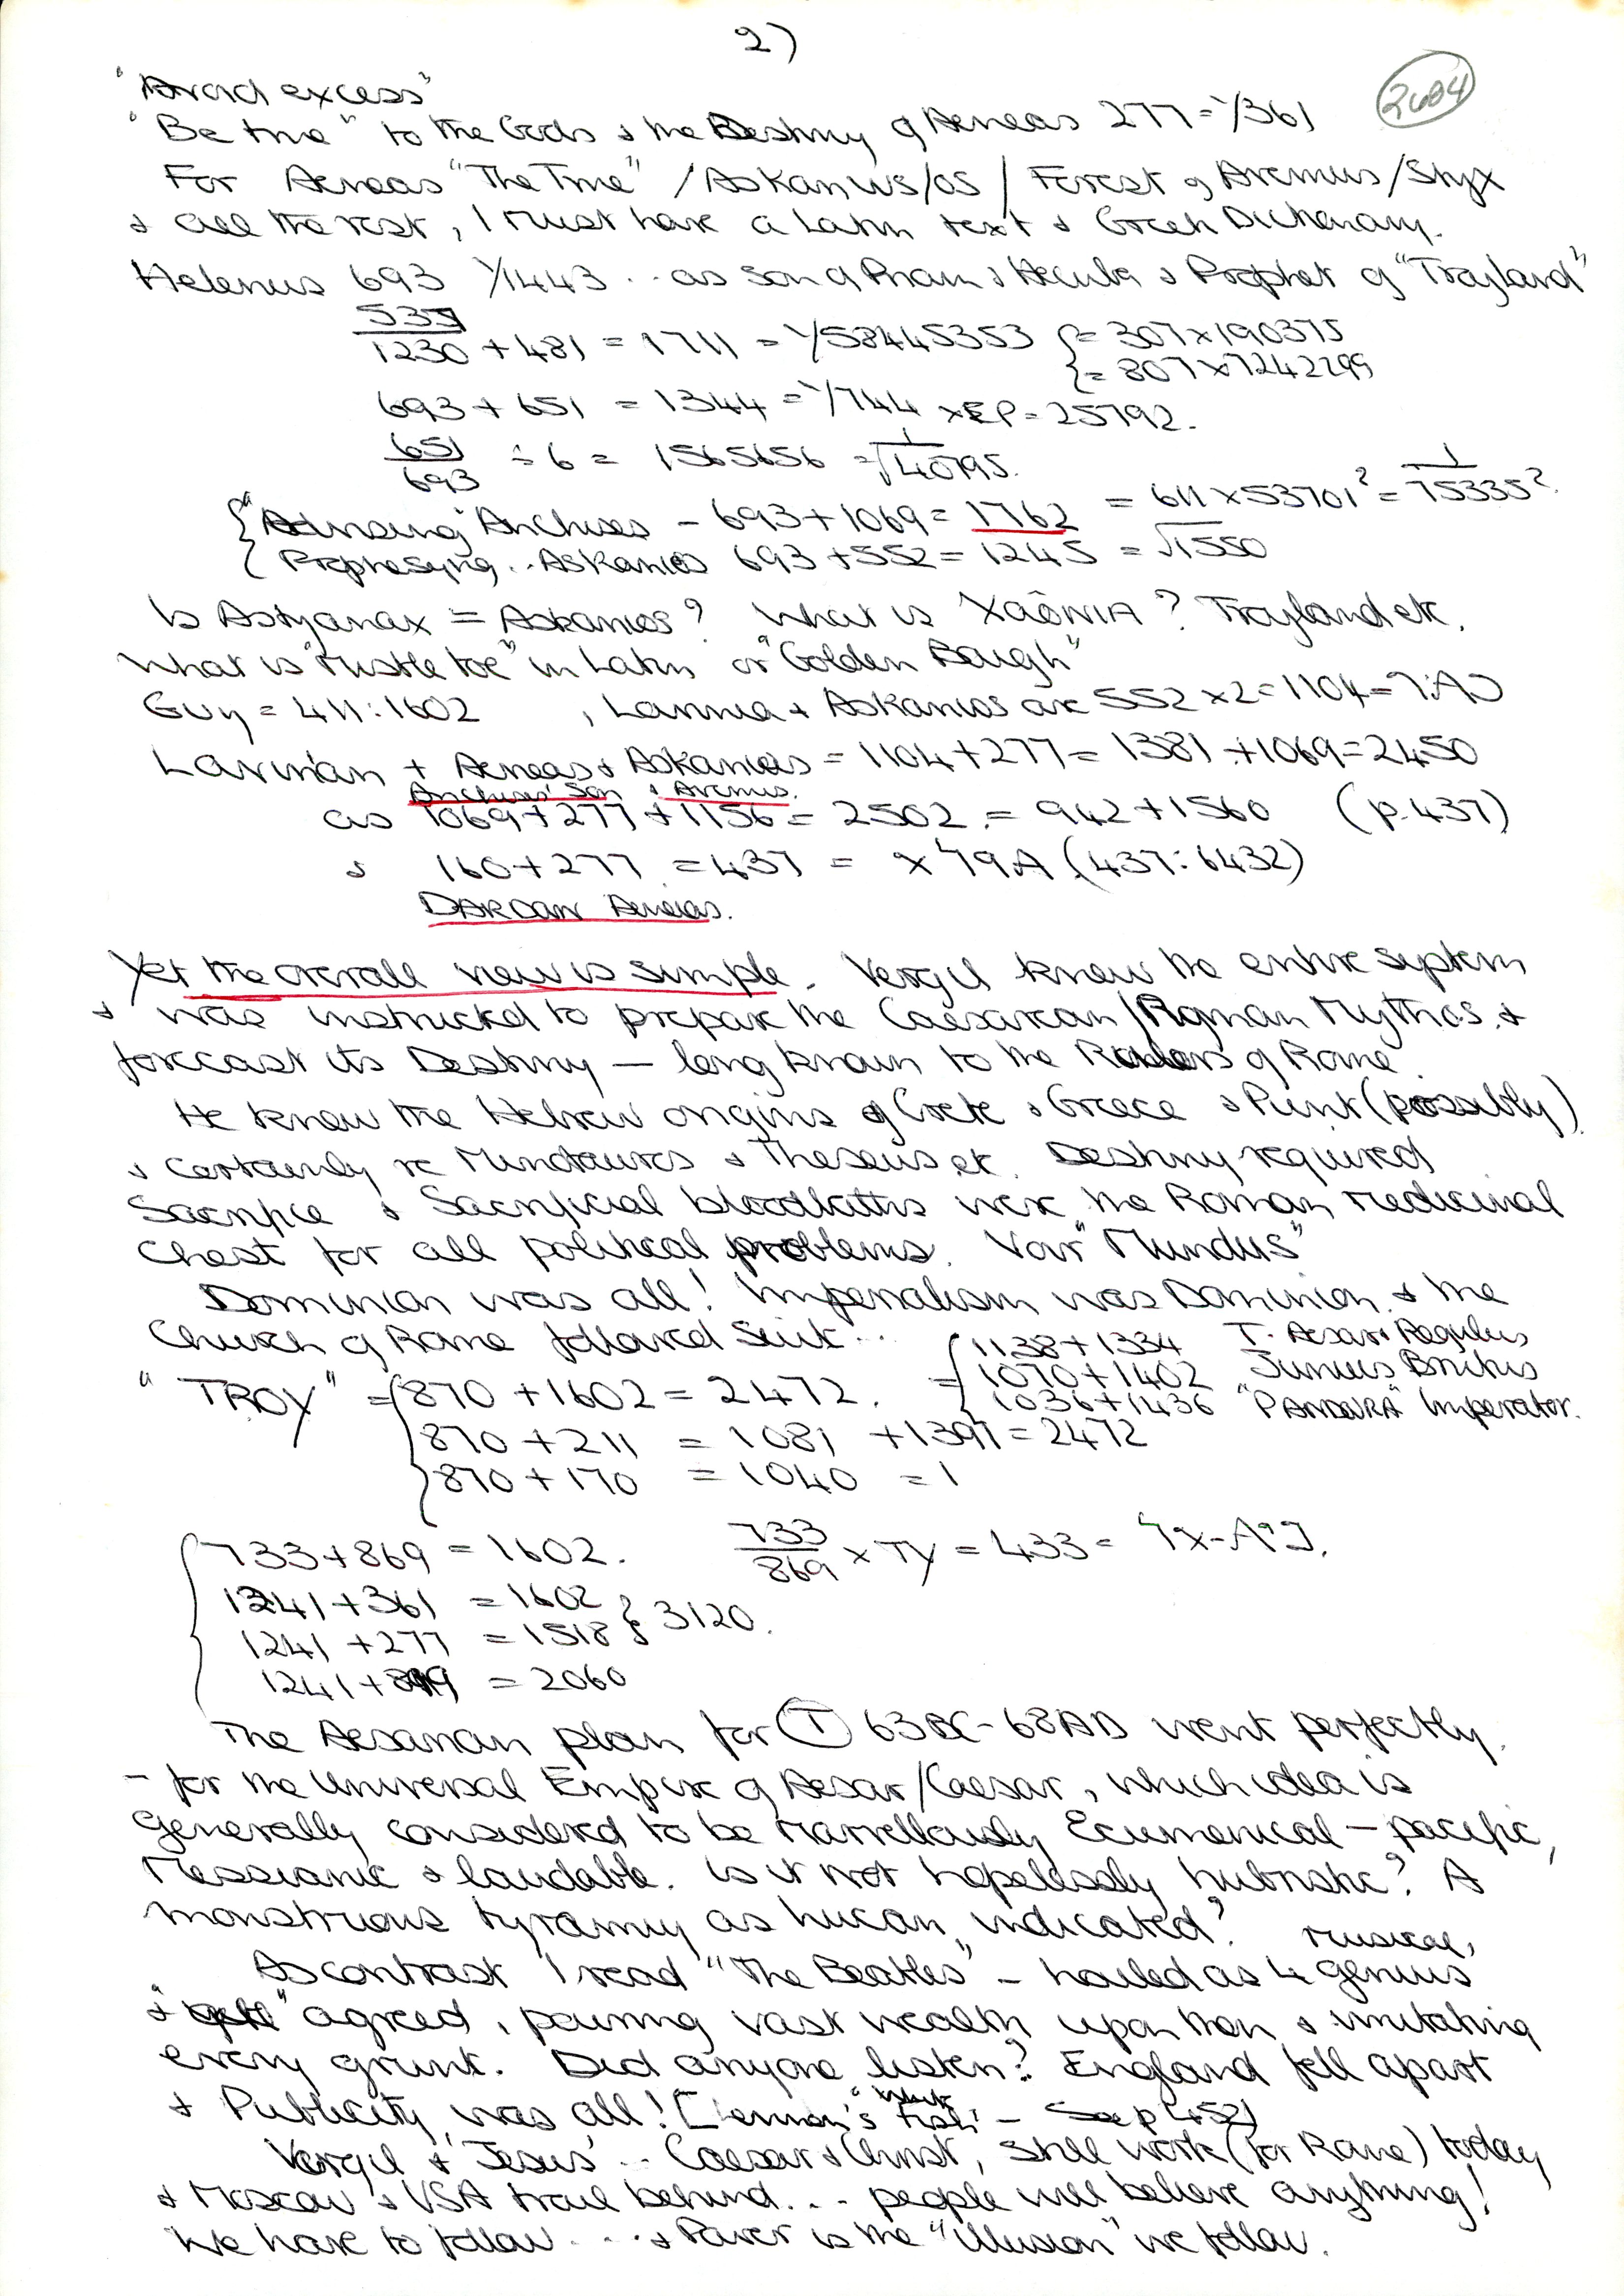 2)
2684
"Avoid excess"
"Be true" to the Gods & the Destiny of Aeneas 277 = 1/361
For Aeneas "The True" / Askanius/os / Forest of Avernus / Styx
& all the rest, I must have a Latin text & Greek Dictionary.
Helenus 693 1/1443 .. as son of Priam & Hecuba & Prophet of "Troyland"
537
1230 + 481 = 1711 = 1/58445353 { = 307 x 190375
{ = 807 x 7242299
693 + 651 = 1344 = 1/744 x EP = 25792.
651/693 ÷ 6 = 1565656 = 1/√40795.
{ "Advising" Anchises - 693 + 1069 = 1762 = 611 x 53701² = 1/75335²
{ Prophesying .. Askanios 693 + 552 = 1245 = √1550
Is Astyanax = Askanios? What is Χαδνια? Troyland etc.
What is "Mistletoe" in Latin or "Golden Bough"
Guy = 411:1602 , Lavinia + Askanios are 552 x 2 = 1104
Lavinian + Aeneas & Askanios = 1104 + 277 = 1381 + 1069 = 2450
Anchises' Son & Avernus.
as 1069 + 277 + 1156 = 2502 = 942 + 1560 (p. 437)
& 160 + 277 = 437 = x 49A (437:6432)
DARDAN Aeneas.
Yet the overall view is simple. Vergil knew the entire system
& was instructed to prepare the Caesarean/Roman Mythos &
forecast its Destiny — long known to the Rulers of Rome
He knew the Hebrew origins of Crete & Greece & Punt (possibly)
& certainly re Minotauros & Theseus etc. Destiny required
Sacrifice & Sacrificial bloodbaths were the Roman medicinal
Chest for all political problems. "Mundus"
Dominion was all! Imperialism was Dominion & the
Church of Rome followed suit...
"TROY" = { 870 + 1602 = 2472. = { 1138 + 1334 T. Aesar Regulus
1070 + 1402 Junius Brutus
1036 + 1436 "PANDORA" Imperator.
870 + 211 = 1081 + 1391 = 2472
870 + 170 = 1040 = 1
{ 733 + 869 = 1602. 733/869 x TY = 433 =
1241 + 361 = 1602 } 3120.
1241 + 277 = 1518 }
1241 + 819 = 2060
The Aesarian plan for (T) 63BC - 68AD went perfectly.
- for the Universal Empire of Aesar/Caesar, which idea is
generally considered to be marvellously Ecumenical - pacific,
Messianic & laudable. Is it not hopelessly hubristic? A
monstrous tyranny as Lucan indicated?
As contrast I read "The Beatles" - hailed as 4 musical genius
& agreed, pouring vast wealth upon them & imitating
every grunt. Did anyone listen? England fell apart
& Publicity was all! [Lennon's "White Trash" - See p 452]
Vergil & 'Jesus' .. Caesar & Christ, still work (for Rome) today
& Moscow & USA trail behind... people will believe anything!
We have to follow .... & Power is the "illusion" we follow.